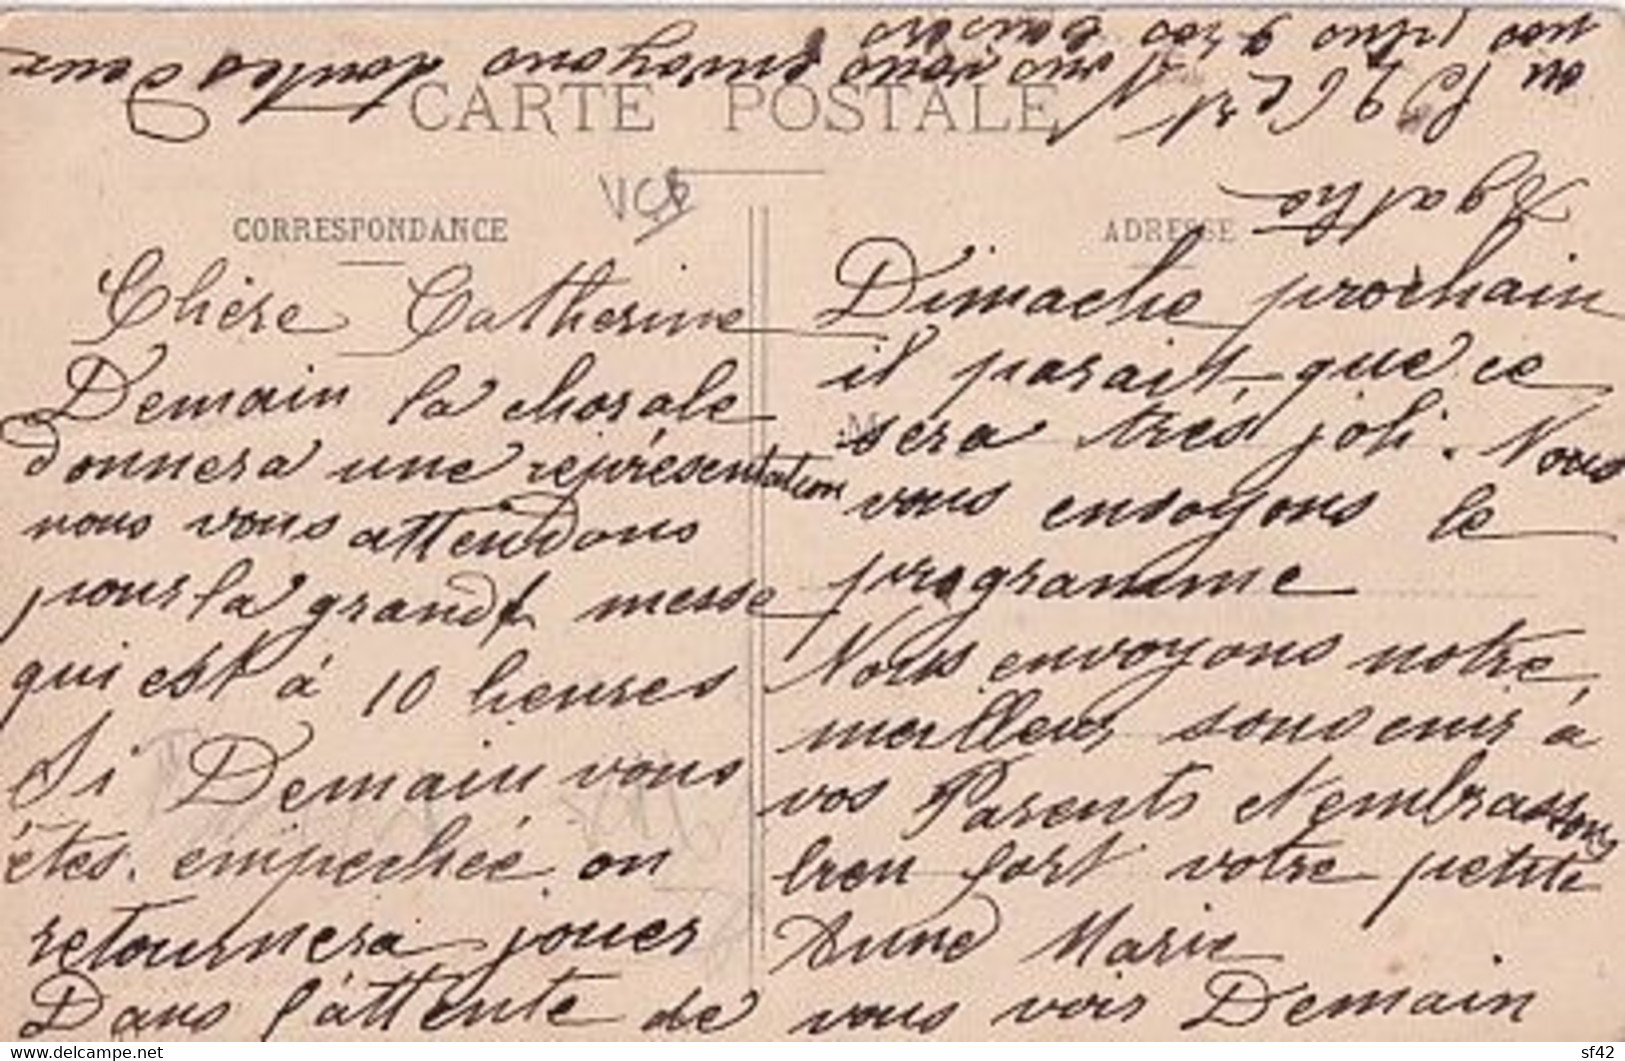 CARTE POSTALE
CORRESPONDANCE
Chère Catherine
Demain la chorale
donnera une représentation
nous vous attendons
pour la grande messe
qui est à 10 heures
Si Demain vous
êtes empechée on
retournera jouer
Dans l'attente de
ADRESSE
Dimache prochain
il parait que ce
sera très joli. Nous
vous envoyons le
programme
Nous envoyons notre
meilleur souvenir à
vos Parents et embrassons
bien fort votre petite
Anne Marie
vous voir Demain
nous vous envoyons toutes deux
nos plus gros baisers
Agatha
sf42